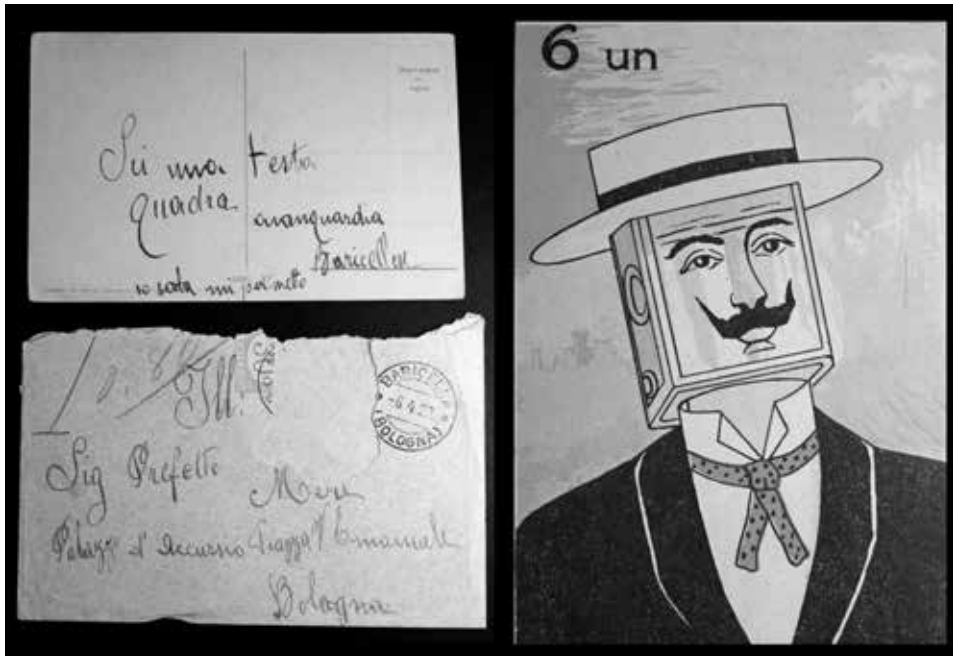 Sei una testa
quadra
avanguardia
Baricellese
Ill:
BARICELLA
(BOLOGNA)
Sig Prefetto
Mori
Palazzo d'Accursio Piazza V Emanuele
Bologna
6 un